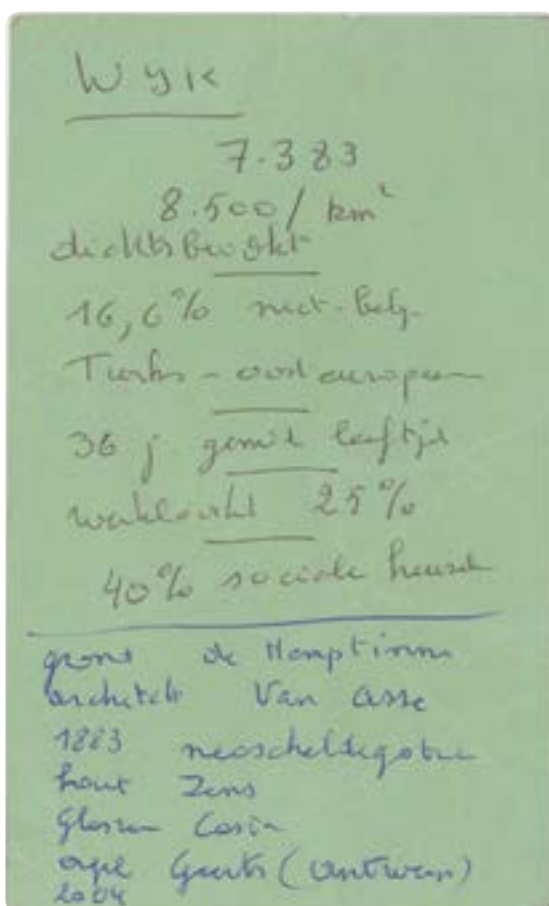 Wyk
7.383
8.500/km²
dichtsbevolkt
16,6% niet-belg.
Turks - oosteuropeen
36 j. gemid leeftijd
werkloosht 25%
40% sociale huurd
grond de Hemptinne
architekt Van Asse
1883 neoscheldegotiek
hout Zens
Glazen
orgel (Antwerpen)
2004